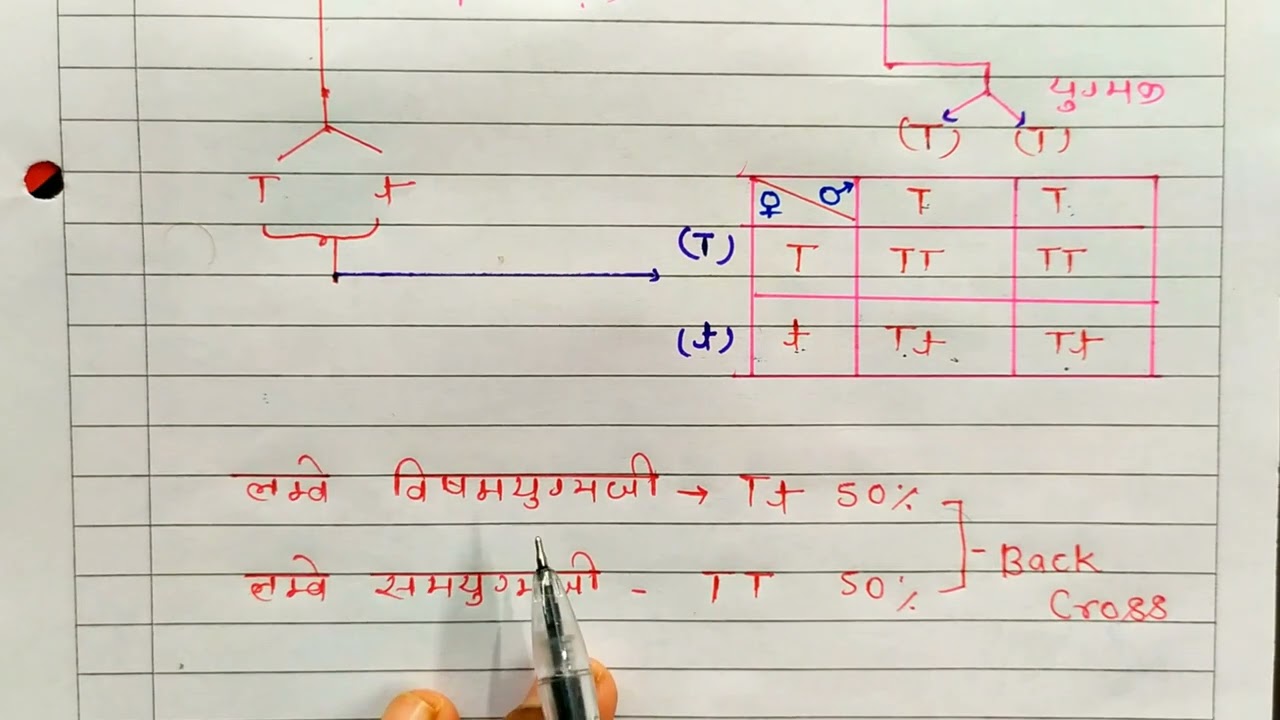 युग्मक
(T) (T)
T t
♀ ♂ T T
(T) T TT TT
(t) t Tt Tt
लम्बे विषमयुग्मजी → Tt 50%
लम्बे समयुग्मजी - TT 50%
- Back
Cross